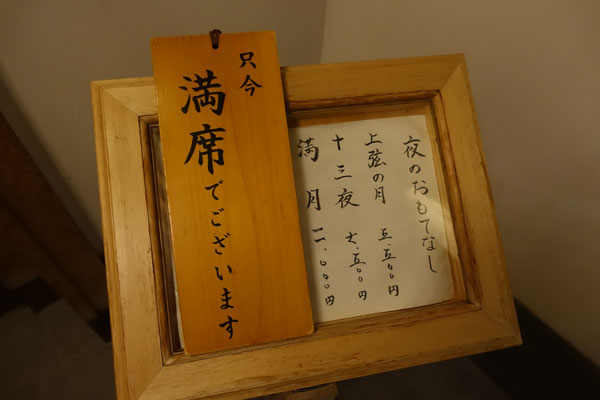 只今
満席でございます
夜のおもてなし
上弦の月 五.五〇〇円
十三夜 .五〇〇円
満月 一一.〇〇〇円